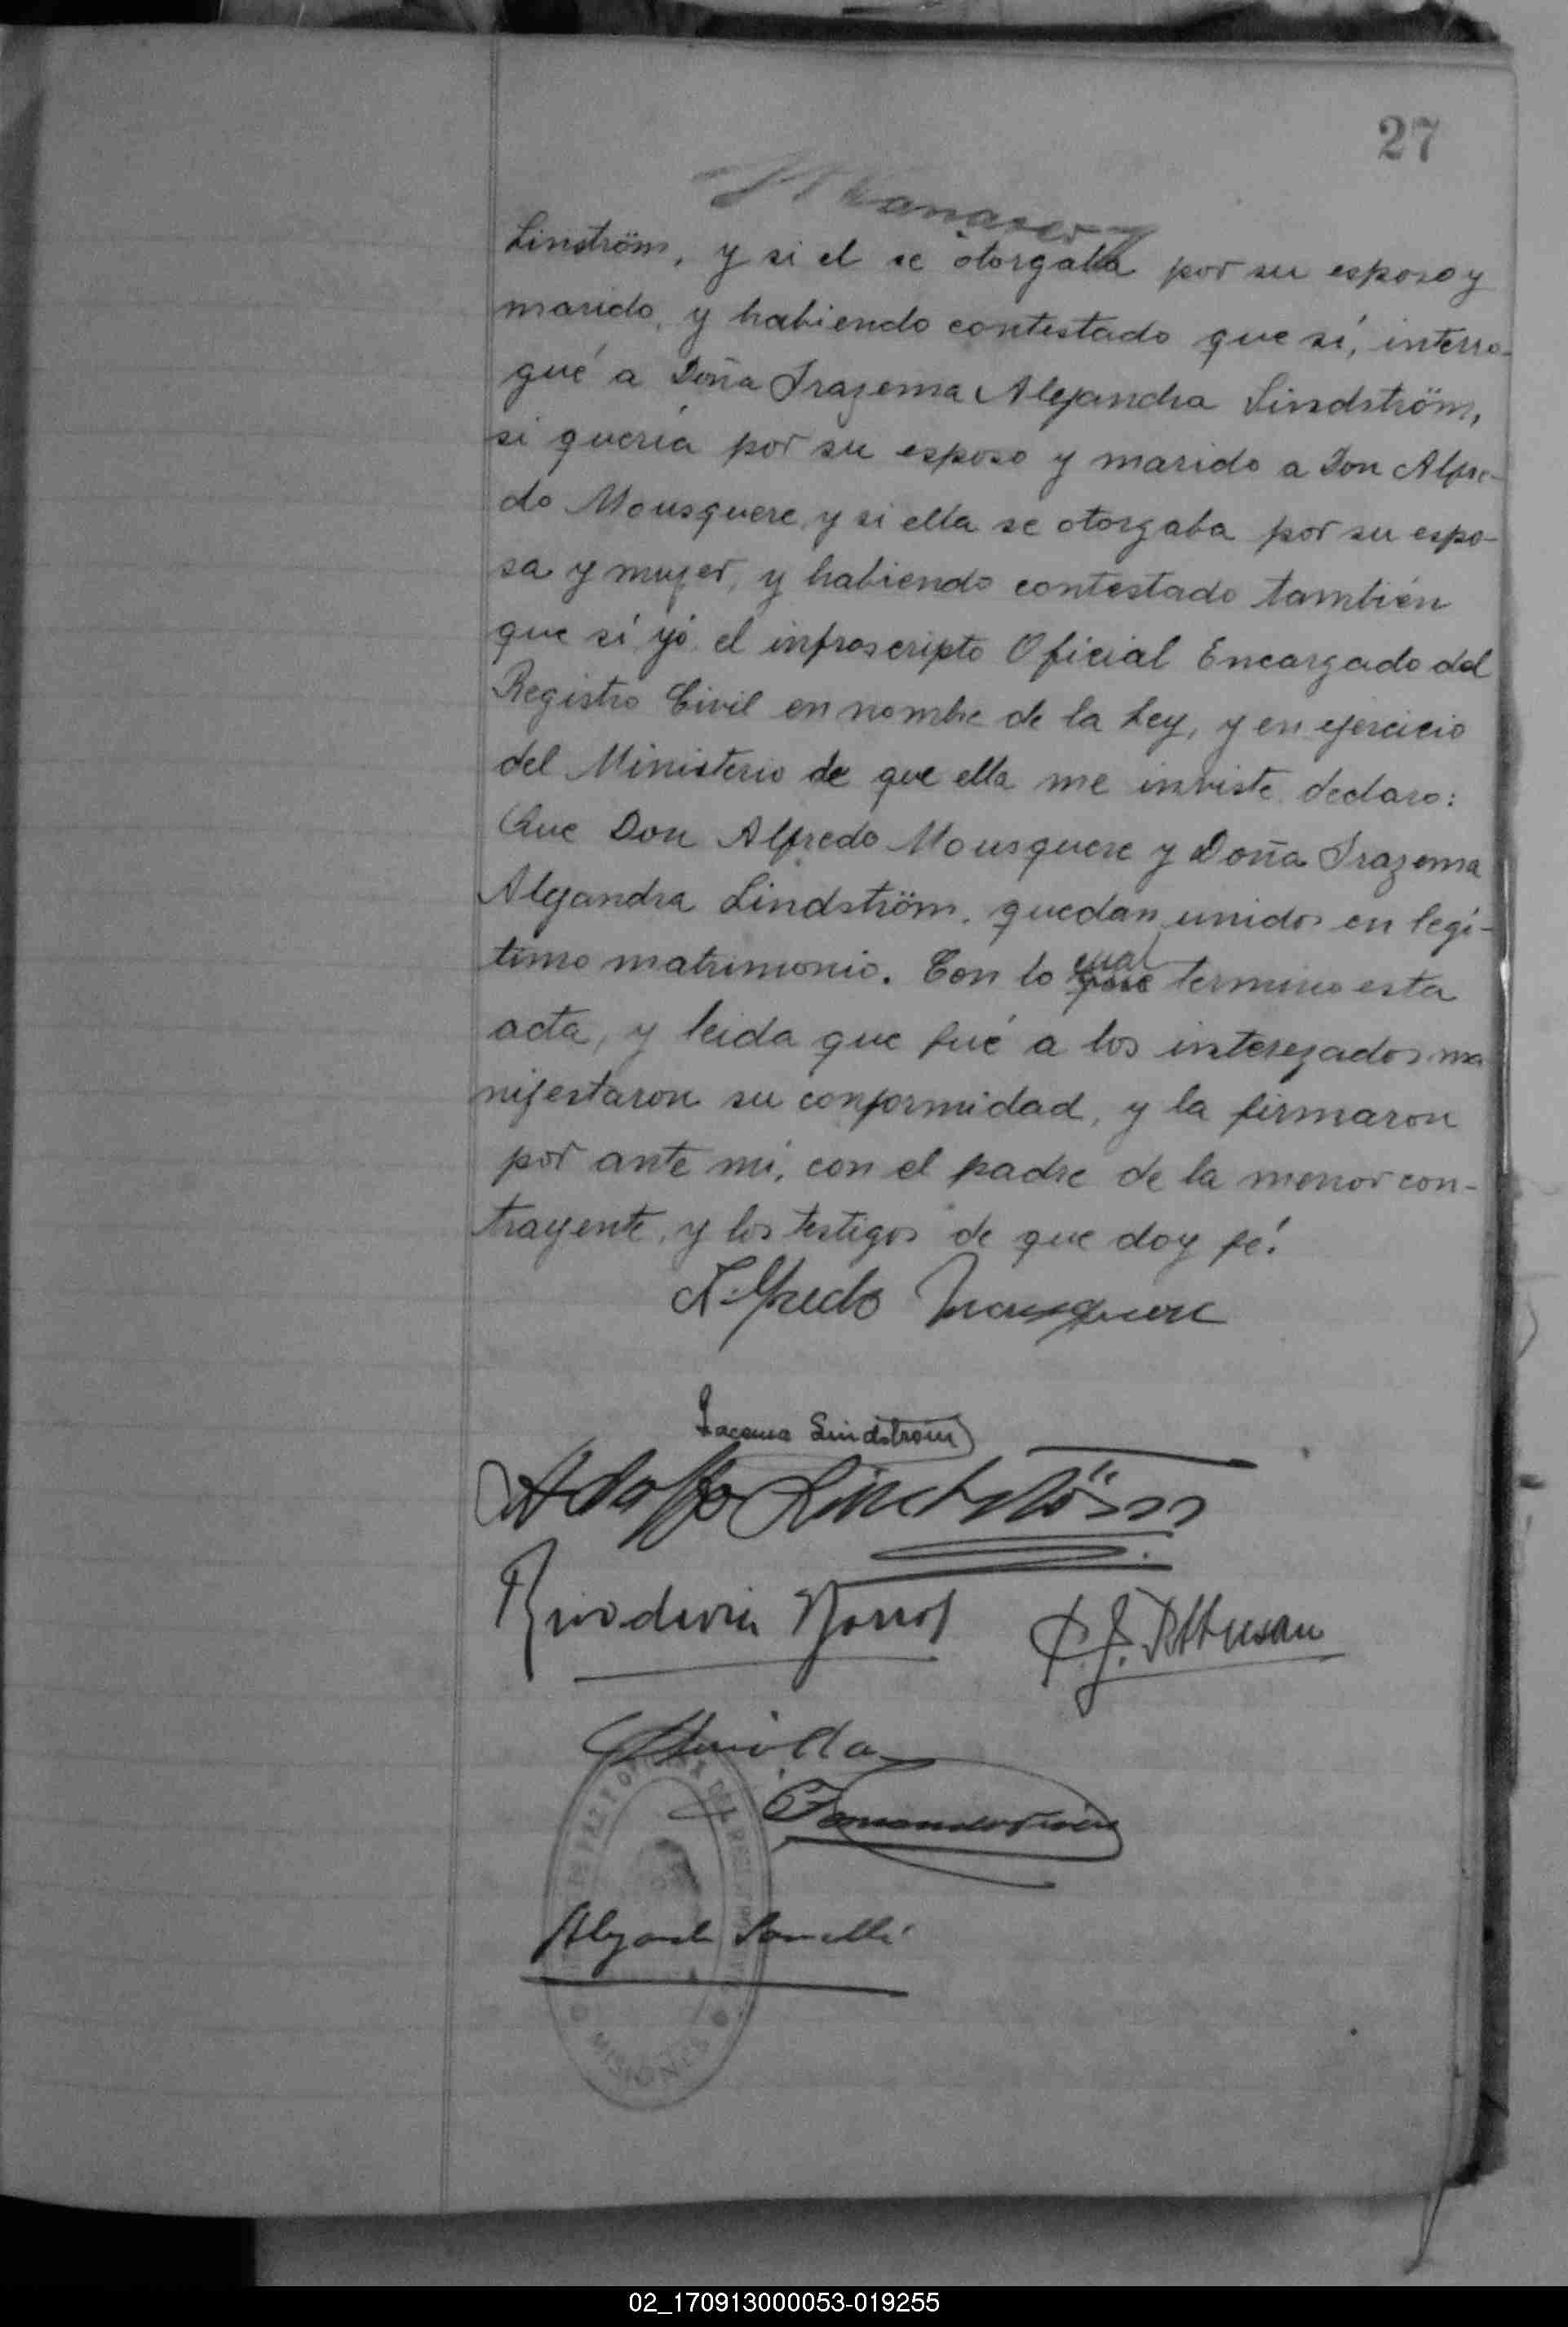 27
Linström, y si el se otorgaba por su esposo y
marido, y habiendo contestado que sí, interro-
gué a Doña Irazema Alejandra Lindström,
si quería por su esposo y marido a Don Alfre-
do Mousquere, y si ella se otorgaba por su espo-
sa y mujer, y habiendo contestado también
que sí, yó el infrascripto Oficial Encargado del
Registro Civil en nombre de la Ley, y en ejercicio
del Ministerio de que ella me inviste, declaro:
Que Don Alfredo Mousquere y Doña Irazema
Alejandra Lindström, quedan unidos en legí-
timo matrimonio. Con lo cual termino esta
acta, y leida que fué a los interezados ma
nifestaron su conformidad, y la firmaron
por ante mí, con el padre de la menor con-
trayente, y los testigos de que doy fé.
Alfredo Mousquere
Iracema Lindström
Adolfo Lindström
MISIONES
02_170913000053-019255